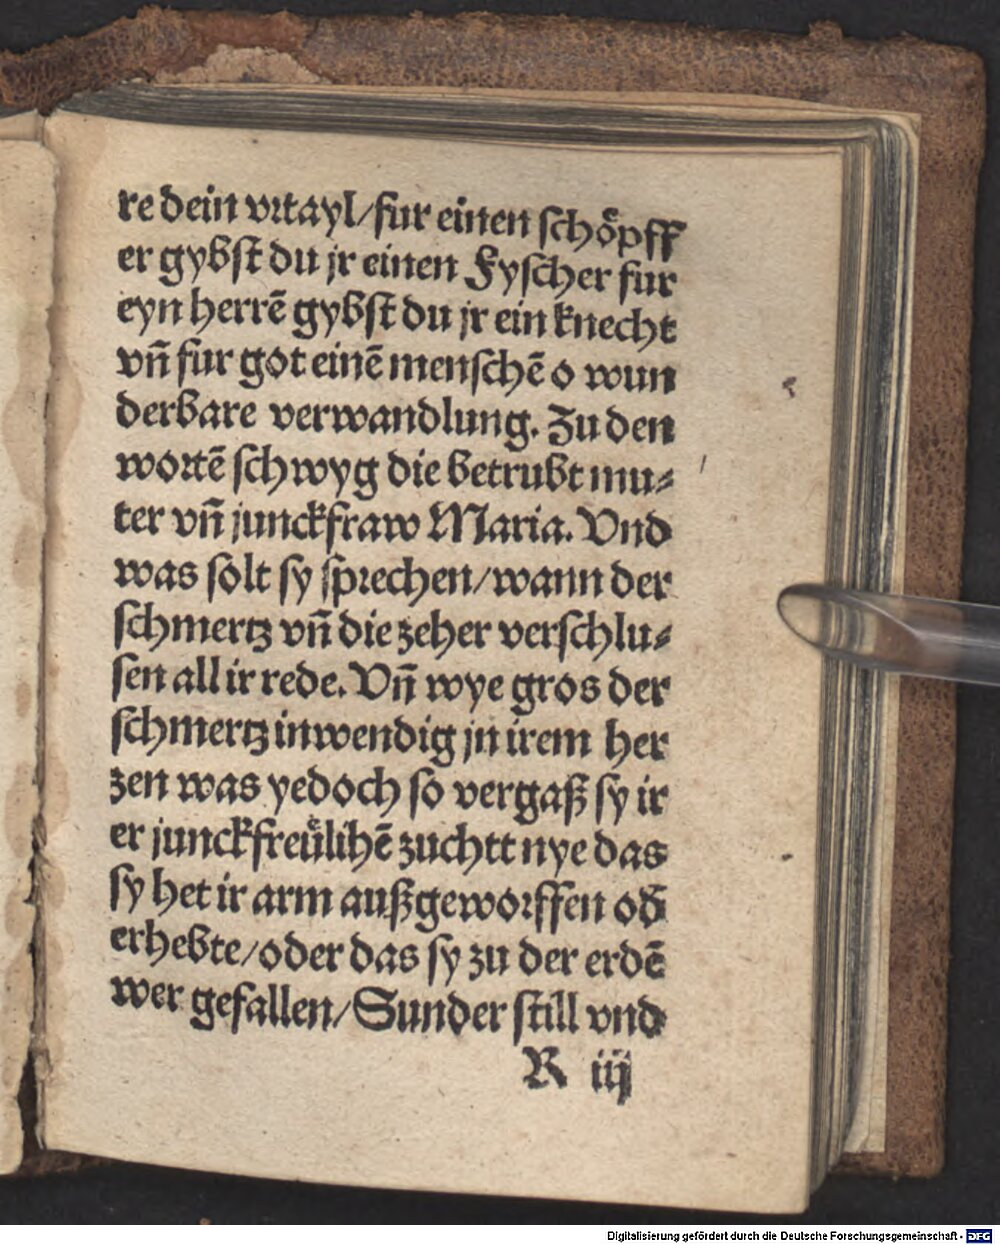 re dein vrtayl/fur einen schoͤpff
er gybst du jr einen Fyscher fur
eyn herrē gybst du jr ein knecht
vn̄ fur got einē menschē o wun
derbare verwandlung. Zu den
wortē schwyg die betrubt mu⸗
ter vn̄ junckfraw Maria. Vnd
was solt sy sprechen/wann der
schmertz vn̄ die zeher verschlu⸗
sen all ir rede. Vn̄ wye gros der
schmertz inwendig jn irem her
zen was yedoch so vergaß sy ir
er junckfreuͤlihē zuchtt nye das
sy het ir arm außgeworffen od̄
erhebte/oder das sy zu der erdē
wer gefallen/Sunder still vnd
R iij
Digitalisierung gefördert durch die Deutsche Forschungsgemeinschaft - DFG